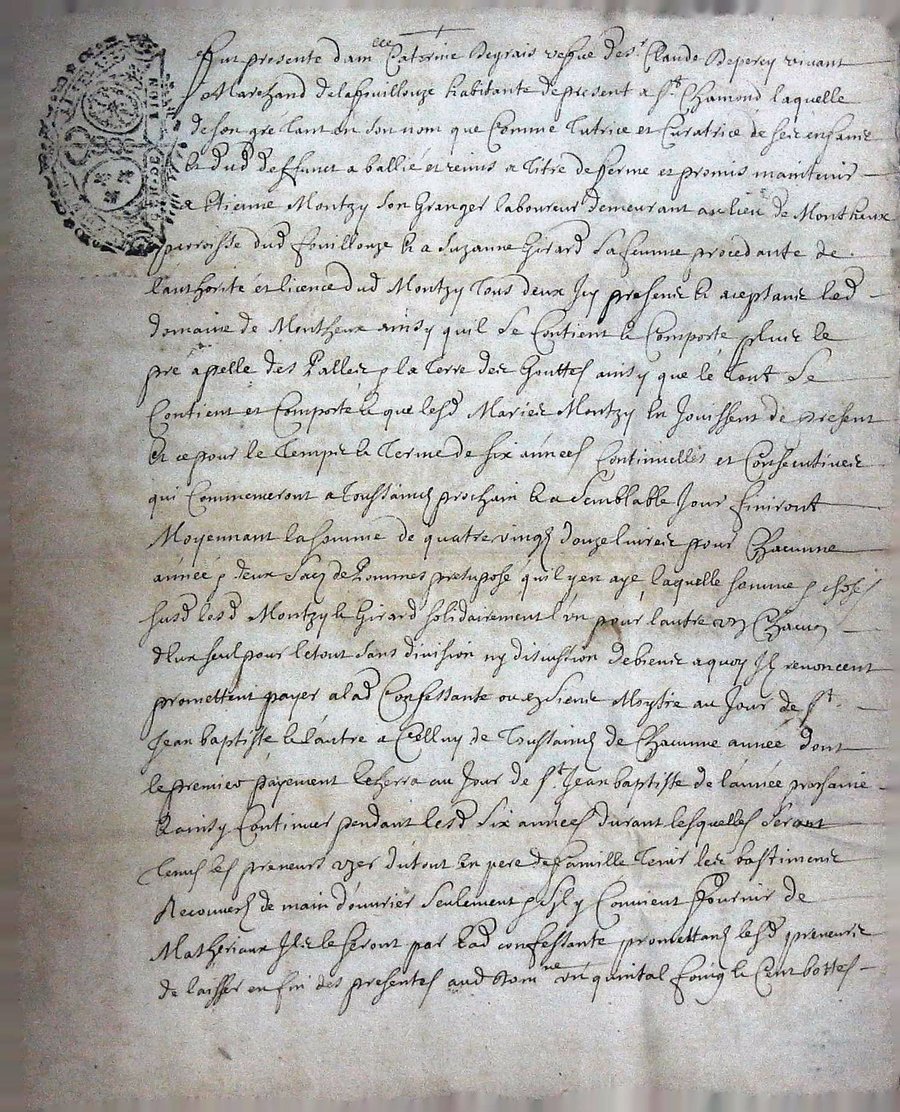 Fut presente dam.lle Caterine Degrais vefue de s.r Claude Deperey vivant
Marchand de lafouillouze habitante de present a S.t Chamond laquelle
de son gré tant en son nom que Comme Tutrice et Curatrice de ses enfans
Et dud deffunct a ballié et remis a Titre de ferme et promis maintenir
a Etienne Montzy son Granger laboureur demeurant au lieu de Montheux
parroisse dud fouillouze & a Suzanne Girard sa femme procedante de
l'authorité et licence dud Montzy Tous deux Icy presens & aceptans led
domaine de Montheux ainsy quil se Contient & Comporte plus le
pré apellé des Palles & la Terre des Gouttes ainsy que le Tout se
Contient et Comporte & que lesd Mariez Montzy En Jouissent de present
Et ce pour le Temps & Terme de six années Continuelles et Consecutives
qui Commenceront a Toussainctz prochain & a semblable Jour finiront
Moyennant la somme de quatre vingtz douze livres pour Chacunne
année & deux sacz de Pommes presuposé quil y en aye, laquelle somme & choses
susd lesd Montzy & Girard solidairement l'un pour lautre un Chacun
d'Eux seul pour le tout sans division ny discussion de biens a quoy Ilz renoncent
promettent payer a lad Confessante ou es siens Moytié au Jour de s.t
Jean baptiste & l'autre a Celluy de Toussainctz de Chacunne année dont
le premier payement Escherra au Jour de s.t Jean baptiste de l'année prochaine
& ainsy Continuer pendant lesd six années durant lesquelles seront
Tenus les preneurs uzer du tout En pere de famille Tenir les bastimens
Recouvertz de main d'ouvrier seulement & sil y Convient fournir de
Matheriaux Ilz le seront par lad confessante promettans lesd preneurs
de laisser en fin des presentes aud dom.ne un quintal foing & Cent bottes